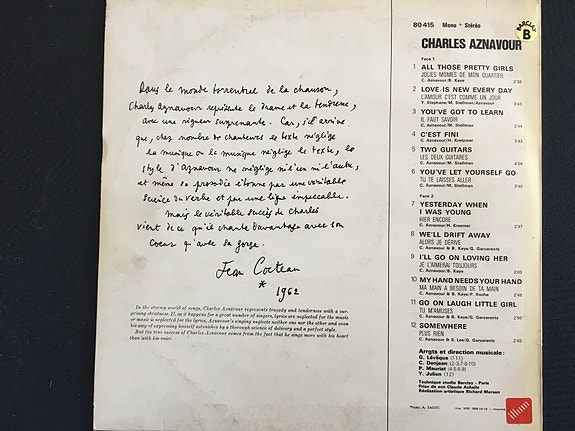 Dans le monde torrentiel de la chanson,
Charles Aznavour représente le drame et la tendresse,
avec une rigueur surprenante. Car, s'il arrive
que, chez nombre de chanteurs le texte néglige
la musique ou la musique néglige le texte, le
style d'Aznavour ne néglige ni l'un ni l'autre,
et même sa prosodie étonne par une véritable
science du verbe et par une ligne impeccable.
Mais le véritable succès de Charles
vient de ce qu'il chante davantage avec son
Coeur qu'avec sa gorge.
Jean Cocteau
*
1962
In the stormy world of songs, Charles Aznavour represents tragedy and tenderness with a sur-
prising strictness. If, as it happens for a great number of singers, lyrics are neglected for the music
or music is neglected for the lyrics, Aznavour's singing neglects neither one nor the other and even
his way of expressing himself astonishes by a thorough science of delivery and a perfect style.
But the true success of Charles Aznavour comes from the fact that he sings more with his heart
than with his voice.
80 415 Mono + Stéréo
BARCLAY
B
CHARLES AZNAVOUR
Face 1
1 ALL THOSE PRETTY GIRLS
JOLIES MOMES DE MON QUARTIER
C. Aznavour/B. Kaye 2'35
2 LOVE IS NEW EVERY DAY
L'AMOUR C'EST COMME UN JOUR
Y. Stephane/M. Stellman/Aznavour
3 YOU'VE GOT TO LEARN
IL FAUT SAVOIR
C. Aznavour/M. Stellman 2'44
4 C'EST FINI
C. Aznavour/H. Kretzmer
5 TWO GUITARS
LES DEUX GUITARES
C. Aznavour/M. Stellman
6 YOU'VE LET YOURSELF GO
TU TE LAISSES ALLER
C. Aznavour/M. Stellman
Face 2
7 YESTERDAY WHEN
I WAS YOUNG
HIER ENCORE
C. Aznavour/H. Kretzmer 2'47
8 WE'LL DRIFT AWAY
ALORS JE DÉRIVE
C. Aznavour & B. Kaye/G. Garvarentz
9 I'LL GO ON LOVING HER
JE L'AIMERAI TOUJOURS
C. Aznavour/B. Kaye
10 MY HAND NEEDS YOUR HAND
MA MAIN A BESOIN DE TA MAIN
C. Aznavour & B. Kaye/P. Roche 2'48
11 GO ON LAUGH LITTLE GIRL
TU M'AMUSES
C. Aznavour & B. Kaye/G. Garvarentz
12 SOMEWHERE
PLUS RIEN
C. Aznavour & S. Lee/G. Garvarentz
Arrgts et direction musicale :
G. Lévèque (1.11)
C. Denjean (2-3.7.8-10)
P. Mauriat (4-5.6-9)
Y. Julien (12)
Technique studio Barclay - Paris
Prise de son Claude Achalle
Réalisation artistique Richard Marsan
Photo : A. SADOC